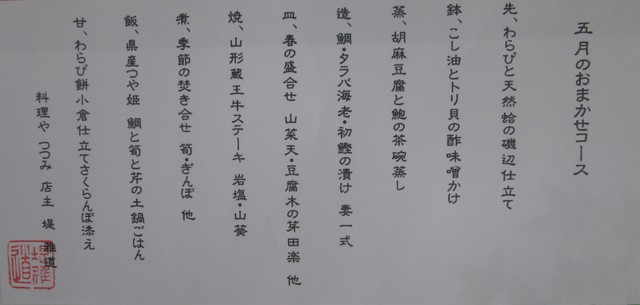 五月のおまかせコース
先、わらびと天然蛤の磯辺仕立て
鉢、こし油とトリ貝の酢味噌かけ
蒸、胡麻豆腐と鮑の茶碗蒸し
造、鯛・タラバ海老・初鰹の漬け 妻一式
皿、春の盛合せ 山菜天・豆腐木の芽田楽 他
焼、山形蔵王牛ステーキ 岩塩・山葵
煮、季節の焚き合せ 筍・ぎんぽ 他
飯、県産つや姫 鯛と筍と芹の土鍋ごはん
甘、わらび餅小倉仕立てさくらんぼ添え
料理や つつみ 店主 堤 雅道